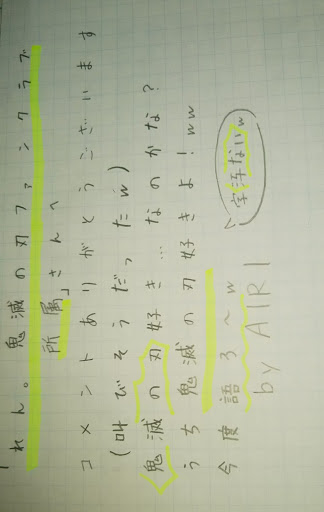 「れん。鬼滅の刃ファンクラブ
所属」さんへ
コメントありがとうございます
(叫びそうだったw)
鬼滅の刃好き…なのかな?
うち鬼滅の刃好きよ!ww
今度語ろ〜w
字汚ないw
by AIRI